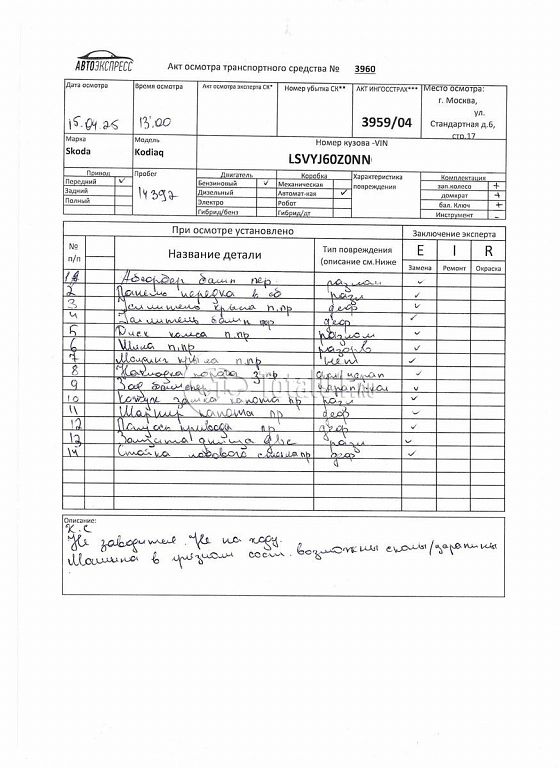 АВТОЭКСПРЕСС
Акт осмотра транспортного средства № 3960
Дата осмотра Время осмотра Акт осмотра эксперта СК* Номер убытка СК** АКТ ИНГОССТРАХ*** Место осмотра:
15.04.25 13:00 3959/04 г. Москва,
ул.
Стандартная д.6,
стр.17
Марка Модель Номер кузова -VIN
Skoda Kodiaq LSVYJ60Z0NN
Привод Пробег Двигатель Коробка Характеристика повреждения Комплектация
14392
Передний ✓ Бензиновый ✓ Механическая зап.колесо +
Задний Дизельный Автомат-кая ✓ домкрат +
Полный Электро Робот бал. Ключ +
Гибрид/бенз Гибрид/дт Инструмент -
При осмотре установлено Заключение эксперта
№ п/п Название детали Тип повреждения (описание см.Ниже E I R
Замена Ремонт Окраска
1 Абсорбер бамп пер. разлом ✓
2 Панель передка в сб разл ✓
3 крыла п.пр деф ✓
4 бамп пр деф ✓
5 Диск колеса п.пр разлом ✓
6 Шина п.пр разорв ✓
7 Молдинг крыла п.пр нет ✓
8 Накладка порога пр ✓
9 Зад бампер ✓
10 Кожух замка капота пр разл ✓
11 Шарнир капота пр деф ✓
12 Полуось привода пр деф ✓
13 Защита днища двс разл ✓
14 Стойка лобового стекла пр деф ✓
Описание:
К.С
Не заводится. Не на ходу.
Машина в грязном сост. возможны сколы/царапины